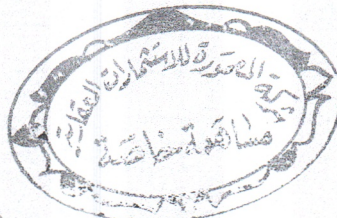 شركة المتطورة للاستثمارات العقارية
مساهمة خاصة